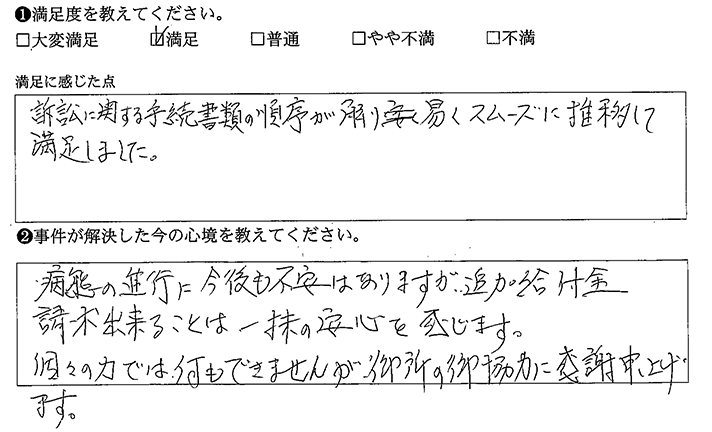 ❶満足度を教えてください。
□大変満足 ☑満足 □普通 □やや不満 □不満
満足に感じた点
訴訟に関する手続書類の順序が解り易くスムーズに推移して
満足しました。
❷事件が解決した今の心境を教えてください。
病態の進行に今後も不安はありますが、追加給付金
請求出来ることは一抹の安心を感じます。
個々の力では何もできませんが、御所の御協力に感謝申上げ
ます。